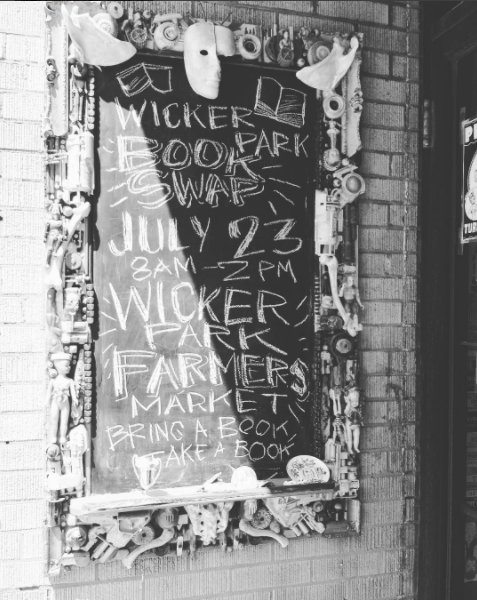 WICKER PARK
BOOK
SWAP
JULY 23
8AM - 2PM
WICKER
PARK
FARMERS
MARKET
BRING A BOOK
TAKE A BOOK